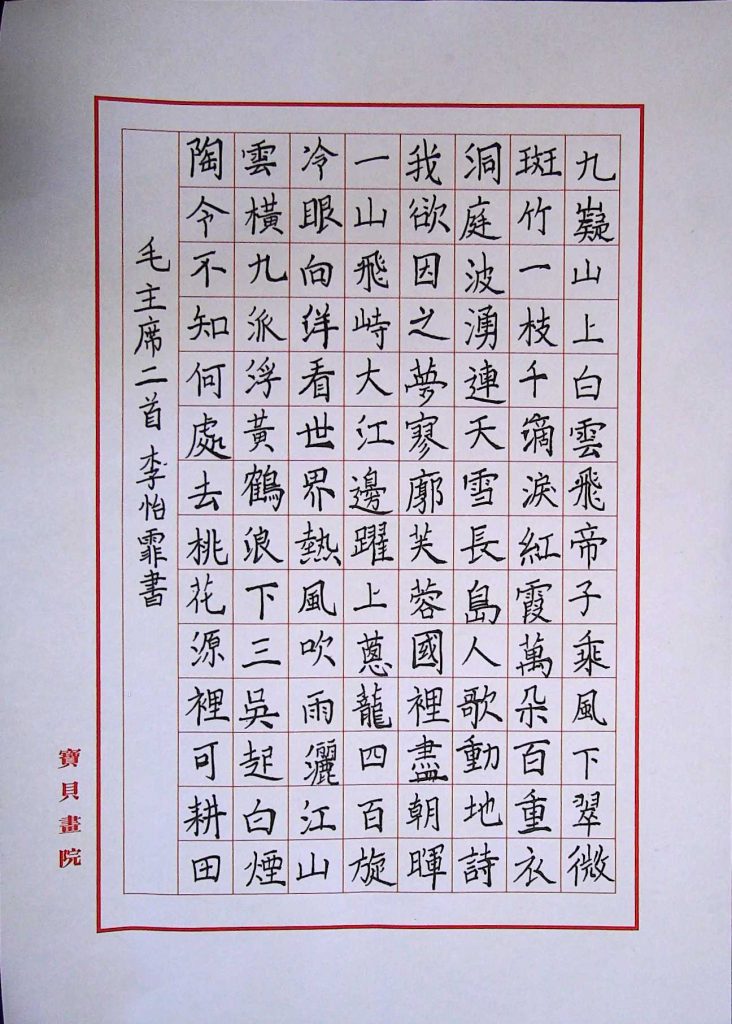 九嶷山上白雲飛帝子乘風下翠微
斑竹一枝千滴淚紅霞萬朵百重衣
洞庭波湧連天雪長島人歌動地詩
我欲因之夢寥廓芙蓉國裡盡朝暉
一山飛峙大江邊躍上蔥蘢四百旋
冷眼向洋看世界熱風吹雨灑江山
雲橫九派浮黃鶴浪下三吳起白煙
陶令不知何處去桃花源裡可耕田
毛主席二首 李怡霏書
寶貝畫院